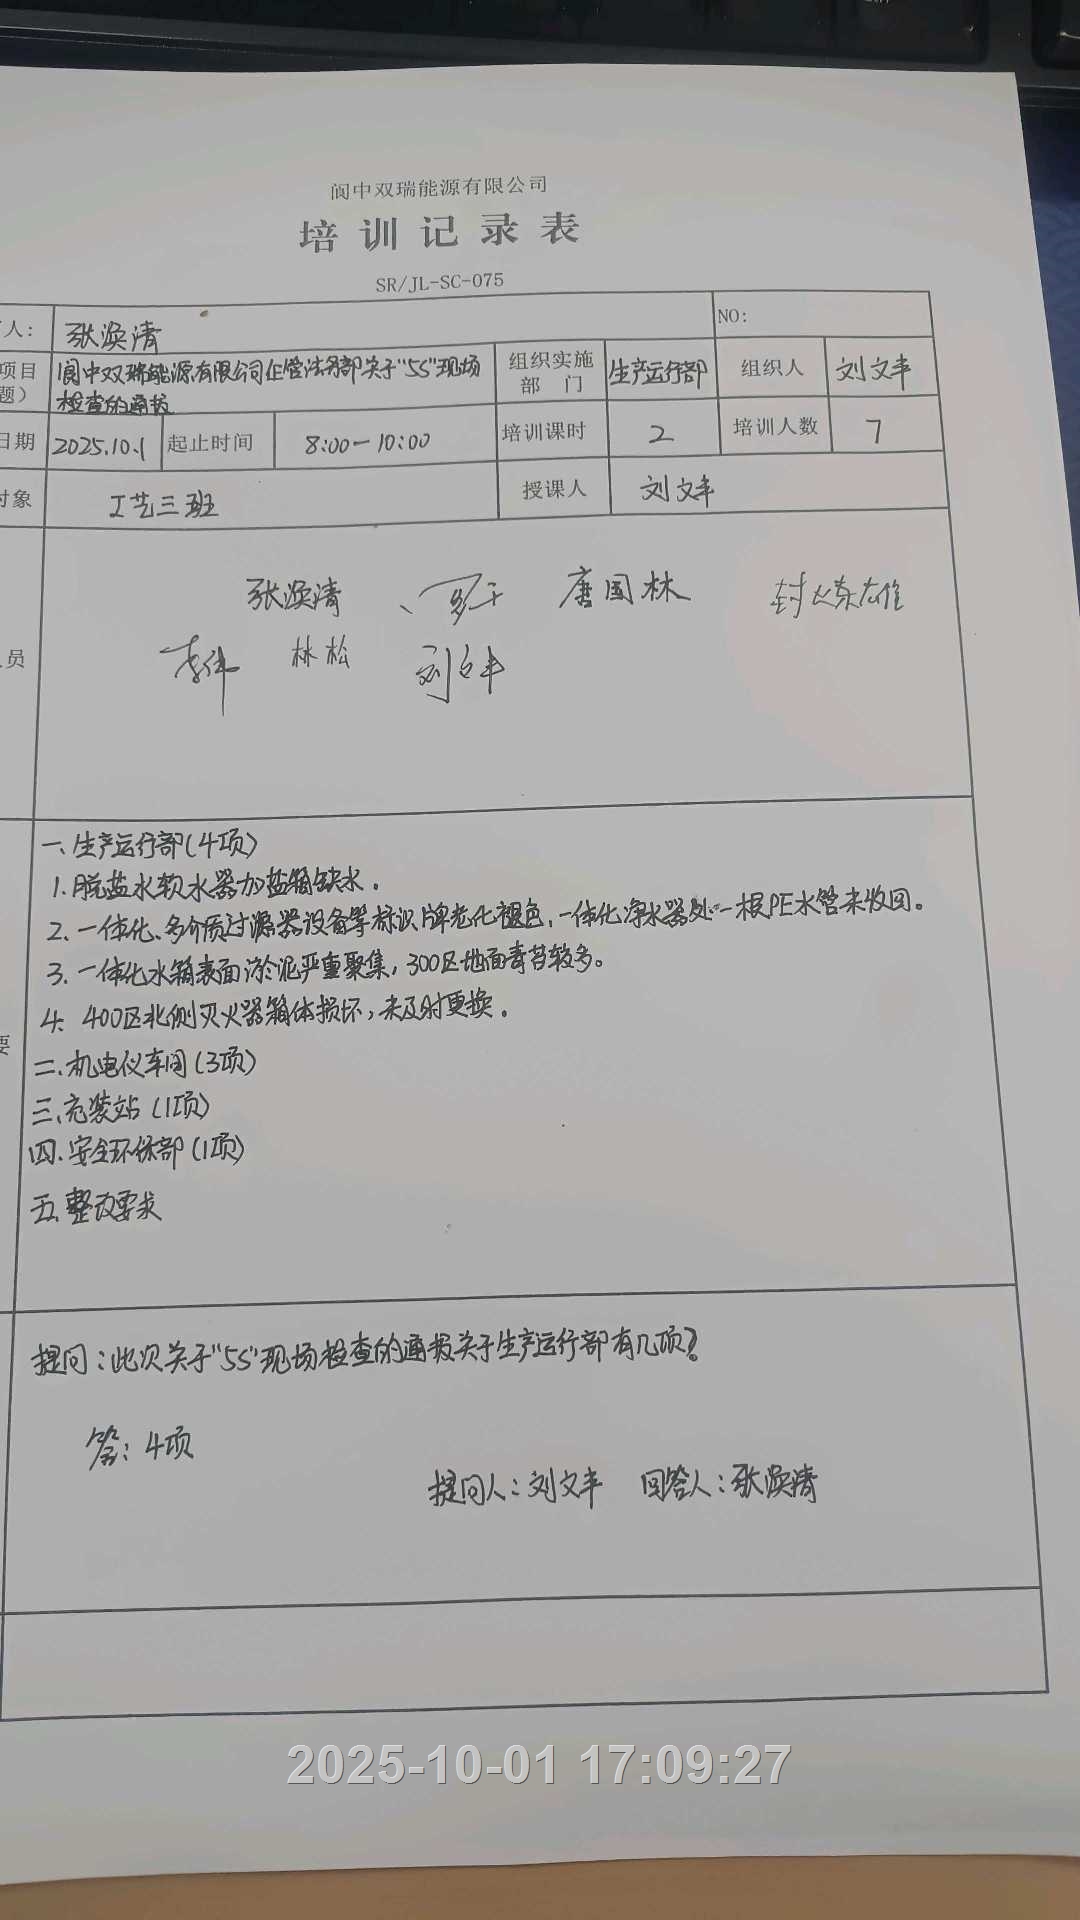 阆中双瑞能源有限公司
培训记录表
SR/JL-SC-075
人: 张涣清 NO:
项目 阆中双瑞能源有限公司企管法务部关于"5S"现场 组织实施 生产运行部 组织人 刘文丰
题） 检查的通报 部 门
日期 2025.10.1 起止时间 8:00—10:00 培训课时 2 培训人数 7
对象 工艺三班 授课人 刘文丰
张涣清 唐国林 封大雄
员 李伟 林松 刘文丰
一、生产运行部(4项)
1.脱盐水软水器加盐箱缺水。
2、一体化、多介质过滤器设备等标识牌老化褪色,一体化净水器处一根PE水管未收回。
3、一体化水箱表面淤泥严重聚集,300区地面青苔较多。
要 4、400区北侧灭火器箱体损坏,未及时更换。
二.机电仪车间(3项)
三、充装站(1项)
四.安全环保部(1项)
五、整改要求
提问:此次关于"5S"现场检查的通报关于生产运行部有几项?
答:4项
提问人:刘文丰 回答人:张涣清
2025-10-01 17:09:27